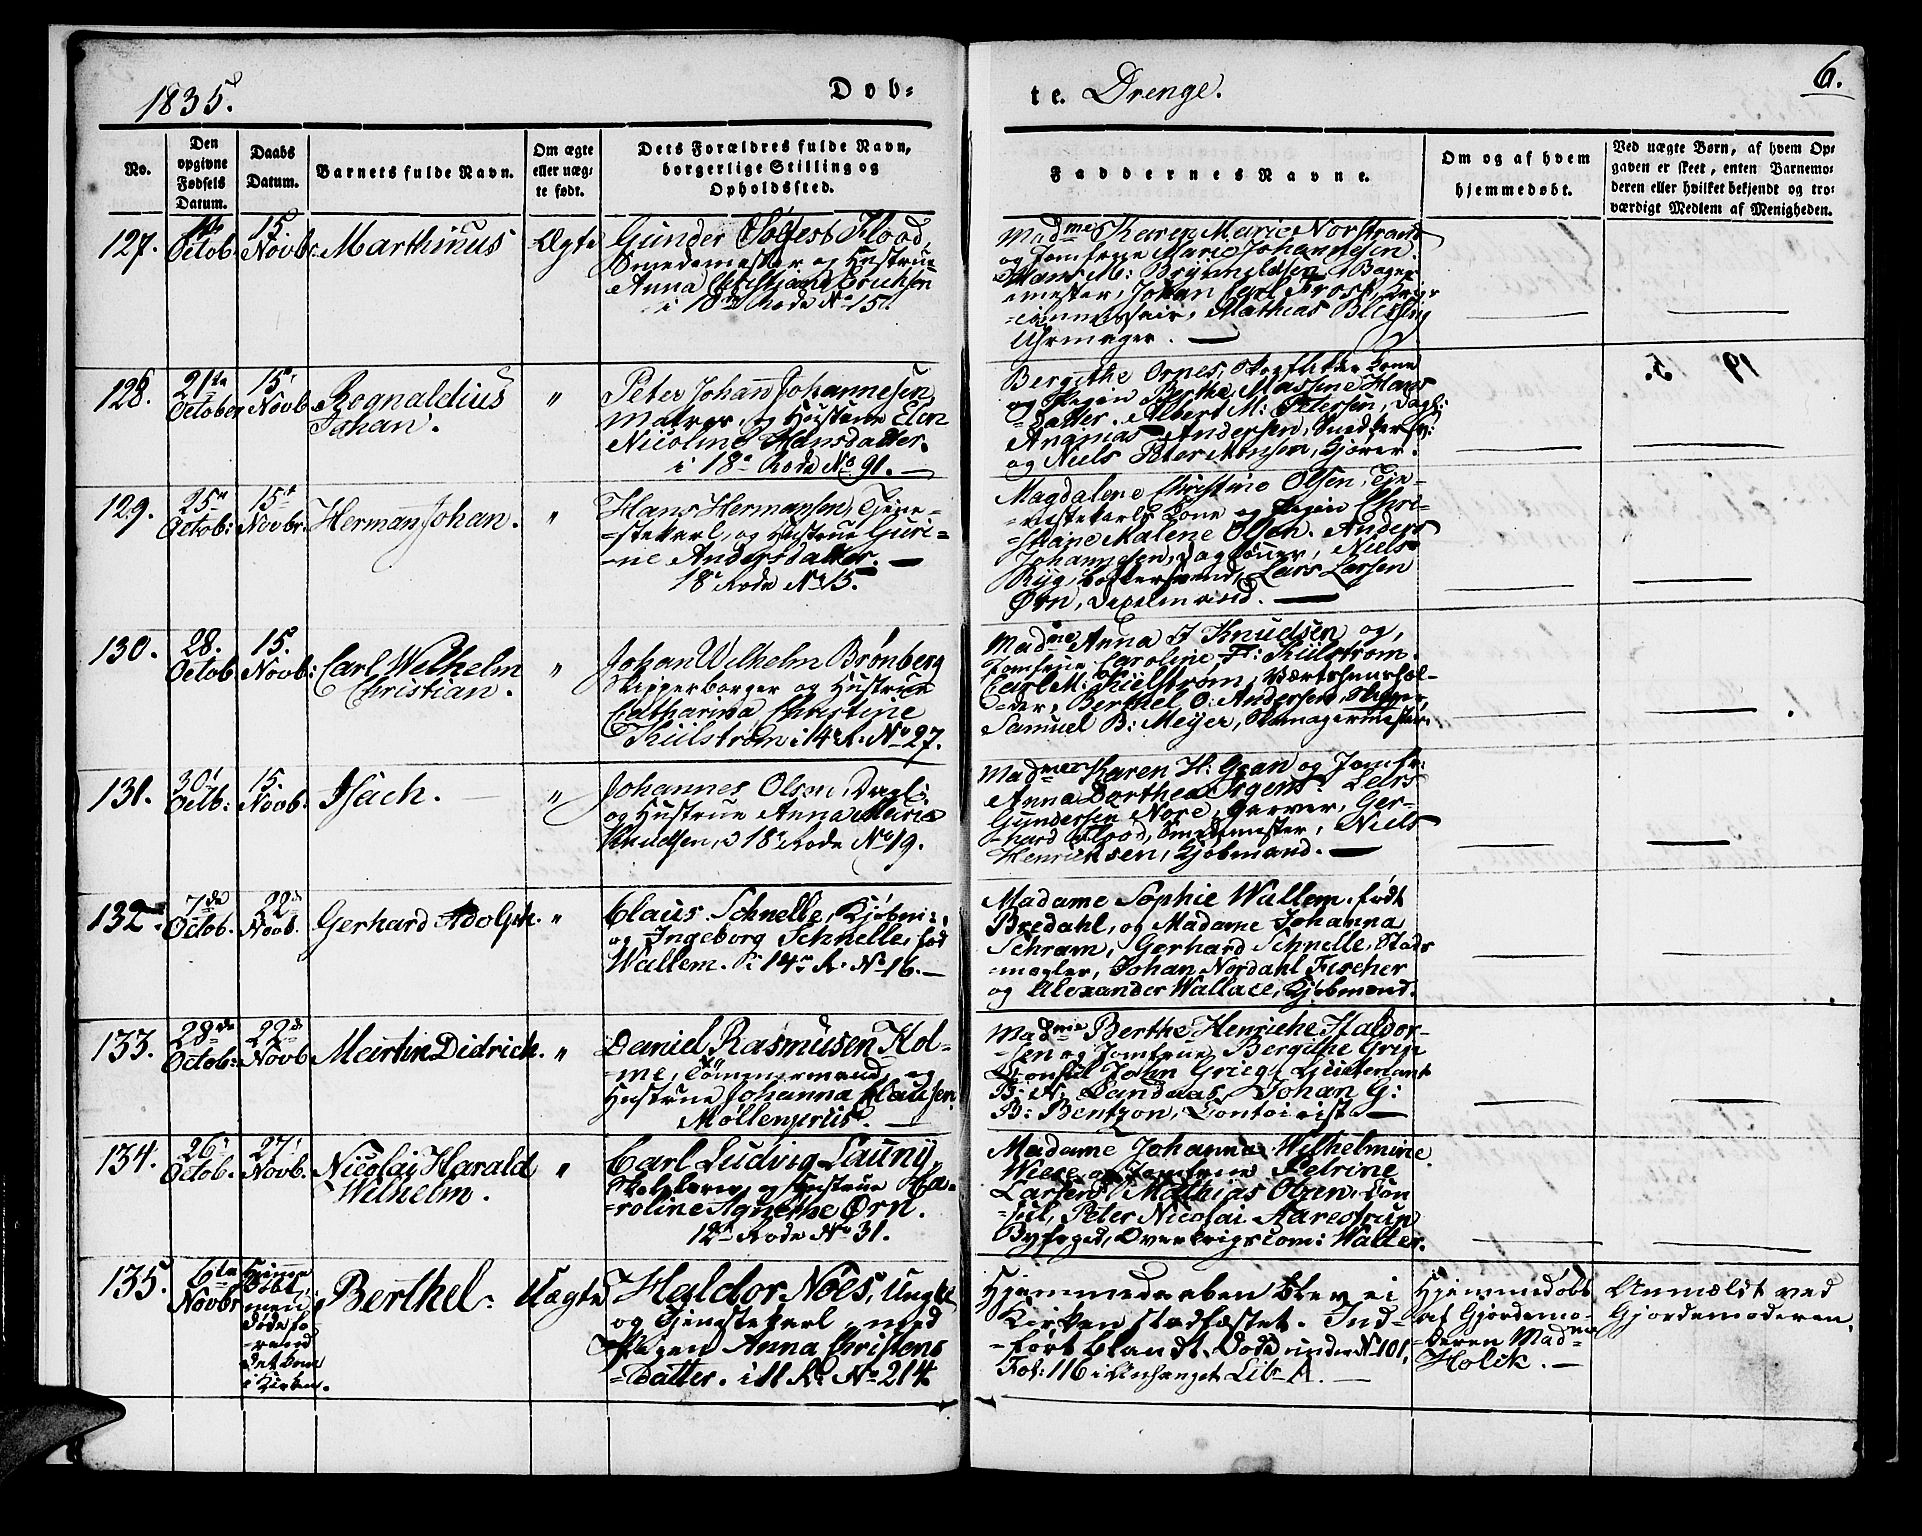 1835.
Døb-
te. Drenge.
6.
No.
Den
opgivne
Fødsels
Datum.
Daabs
Datum.
Barnets fulde Navn.
Om ægte
eller uæg-
te født.
Dets Forældres fulde Navn,
borgerlige Stilling og
Opholdssted.
Faddernes Navne.
Om og af hvem
hjemmedøbt.
Ved uægte Børn, af hvem Op-
gaven er skeet, enten Barnemo-
deren eller hvilket bekjendt og tro-
værdigt Medlem af Menigheden.
127.
Octob.
15
Novbr:
Marthinus
Ægte
Gunder Flood,
Smedemester og Hustrue
Anna Christjane Erichsen
i 18de Rode No 15.
Madme Karen Marie Norstrand
og Jomfrue Marie Johannesen.
Hans M: Brynnildsen, Bager-
mester, Johan Carl Frost, Krigs-
-commissair, Mathias
Uhrmager. —
128.
21te
October
15'
Novb.
Rognaldius
Johan.
"
Peter Johan Johannesen,
Matros, og Hustrue Elen
Nicoline Hansdatter.
i 18e Rode No 91. —
Bergithe Ornes, Kone
og Pigen Berthe Massine Hans
-datter. Albert M: Petersen, Dagl:
Ananias Andersen, Snedkersv:
og Niels Peter Monsen, Kjører.
19 5.
129.
25de
Octob:
15de
Novbr.
Herman Johan.
"
Hans Hermansen, Tjene-
-stekarl, og Hustrue Guri-
-ne Andersdatter. —
18e Rode No 15.
Magdalene Christine Olsen, Tje-
-nestekarls Kone og Pigen Chri-
-stiane Malene Olsen. Anders
Johannesen, Dagl, Niels
Lars Larsen
Ørn, —
130.
28.
Octob
15.
Novb:
Carl Wilhelm
Christian.
"
Johan Wilhelm Brønberg
Skipperborger og Hustrue
Catharina Christine
Külstrøm i 14e R. No 27.
Madme Anna J Knudsen og
Jomfrue Caroline F: Külstrøm.
Carl M: Kielstrøm, Værtshuushol-
der, Berthel O: Andersen,
Samuel B: Meyer,
131.
30'
Octb:
15.
Novb.
Isach. —
"
Johannes Olsen, Dagl:
og Hustrue Anna Maria
Knudsen, i 18e Rode No 19.
Madmer Karen H: Gran og Jomfr:
Anna Dorthea Irgens. Lars
Gundersen Nore, Garver, Ger-
-hard Flood, Smedmester, Niels
Henriksen, Kjøbmand. —
132.
7de
Octob.
22de
Novb.
Gerhard Adolph.
"
Claus Schnelle, Kjøbm:
og Ingeborg Schnelle, fød
Wallem. i 14e R. No 16. —
Madame Sophie Wallem, født
Bredahl, og Madame Johanna
Schram, Gerhard Schnelle, Stads
-mægler, Johan Nordahl Fischer
og Alexander Wallace, Kjøbmænd.
133.
28de
Octob:
22de
Novb.
Martin Didrich.
"
Daniel Rasmusen Hol-
-me, Tømmermand, og
Hustrue Johanna Clausen
Møllenpriis. —
Madme Berthe Henriche Haldor-
-sen og Jomfrue Bergithe Grip
Consul John Grieg, Lieutenant
B: N: Sandaas, Johan G:
B: Bentzon, Contoirist —
134.
26'
Octob.
27'
Novb.
Nicolai Harald
Wilhelm.
"
Carl Ludvig Launy,
Skolelærer, og Hustrue
-roline Agnethe Ørn.
12te Rode No 31.
Madame Johanna Wilhelmine
Wiese og Jomfrue Petrine
Larsen, Mathias Olsen, Con
-sul, Peter Nicolai Aarestrup
Byfoged, Overkrigscom: Walter.
135.
6te
Novbr
Hjemme
døbt,
men
døde fo-
-rend
det kom
i Kirken.
Berthel.
Uægte
Haldor Noes, Ungk
og Tjenestekarl, med
Pigen Anna Christens
-datter. i 11 R: No 214
Hjemmedaaben blev ei
i Kirken stadfæstet. Ind-
-ført blandt Døde under No 101,
Fol: 116 i Anhanget Lit: A. —
Hjemmedøbt
af Gjordemo-
-deren Madme
Holck. —
Anmældt ved
Gjordemoderen.